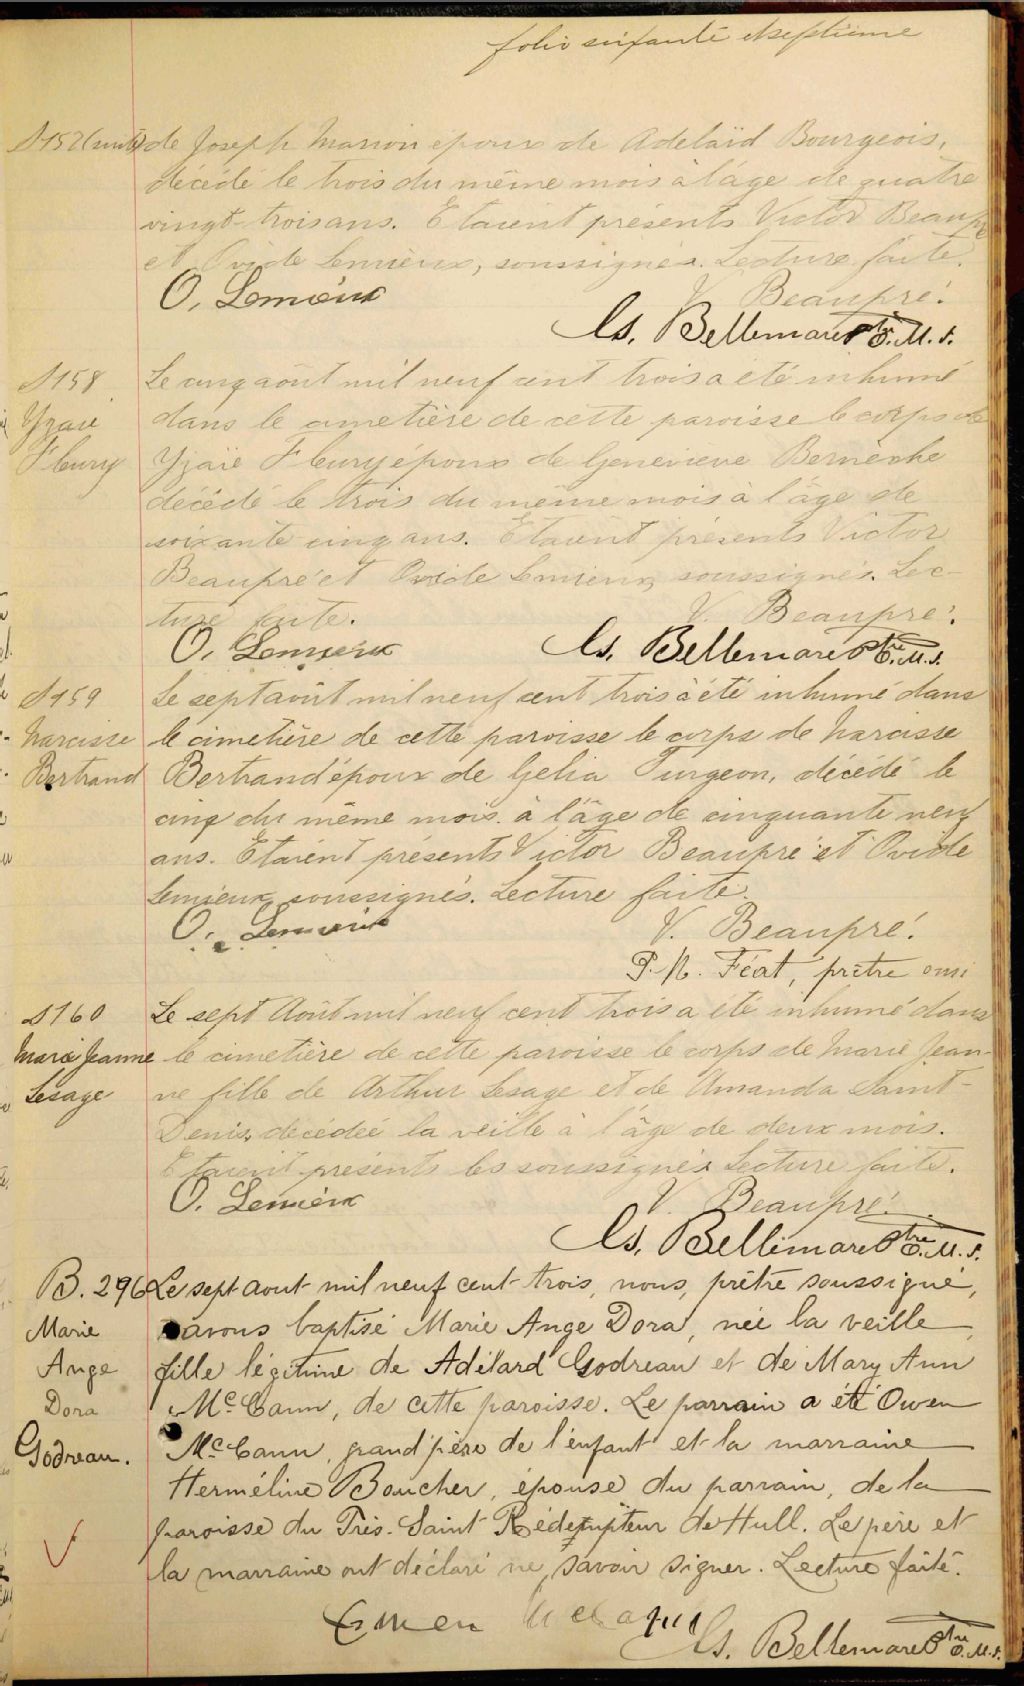 folio soixante et septième
S157 (suite) de Joseph Marion époux de Adelaïd Bourgeois,
décédé le trois du même mois à l'âge de quatre
vingt-trois ans. Etaient présents Victor Beaupré
et Ovide Lemieux, soussignés. Lecture faite.
O. Lemieux V. Beaupré.
Cs. Bellemare Ptre O.M.I.
S158 Le cinq août mil neuf cent trois a été inhumé
Yzaïe dans le cimetière de cette paroisse le corps de
Fleury Yzaïe Fleury époux de Geneviève Bernèche
décédé le trois du même mois à l'âge de
soixante cinq ans. Etaient présents Victor
Beaupré et Ovide Lemieux, soussignés. Lec-
ture faite. V. Beaupré.
O. Lemieux Cs. Bellemare Ptre O.M.I.
S159 Le sept août mil neuf cent trois à été inhumé dans
Narcisse le cimetière de cette paroisse le corps de Narcisse
Bertrand Bertrand époux de Gelia Turgeon, décédé le
cinq du même mois à l'âge de cinquante neuf
ans. Etaient présents Victor Beaupré et Ovide
Lemieux soussignés. Lecture faite.
O. Lemieux V. Beaupré.
P. N. Féat, prêtre omi
S160 Le sept Août mil neuf cent trois a été inhumé dans
Marie Jeanne le cimetière de cette paroisse le corps de Marie Jean-
Lesage ne fille de Arthur Lesage et de Amanda Saint-
Denis, décédée la veille à l'âge de deux mois.
Etaient présents les soussignés Lecture faite.
O. Lemieux V. Beaupré.
Cs. Bellemare Ptre O.M.I.
B. 296 Le sept Aout mil neuf cent trois, nous, prêtre soussigné,
Marie avons baptisé Marie Ange Dora, née la veille,
Ange fille légitime de Adélard Godreau et de Mary Ann
Dora McCann, de cette paroisse. Le parrain a été Owen
Godreau. McCann, grand'père de l'enfant et la marraine
Herméline Boucher, épouse du parrain, de la
paroisse du Très-Saint Rédempteur de Hull. Le père et
la marraine ont déclaré ne savoir signer. Lecture faite.
Cs. Bellemare Ptre O.M.I.